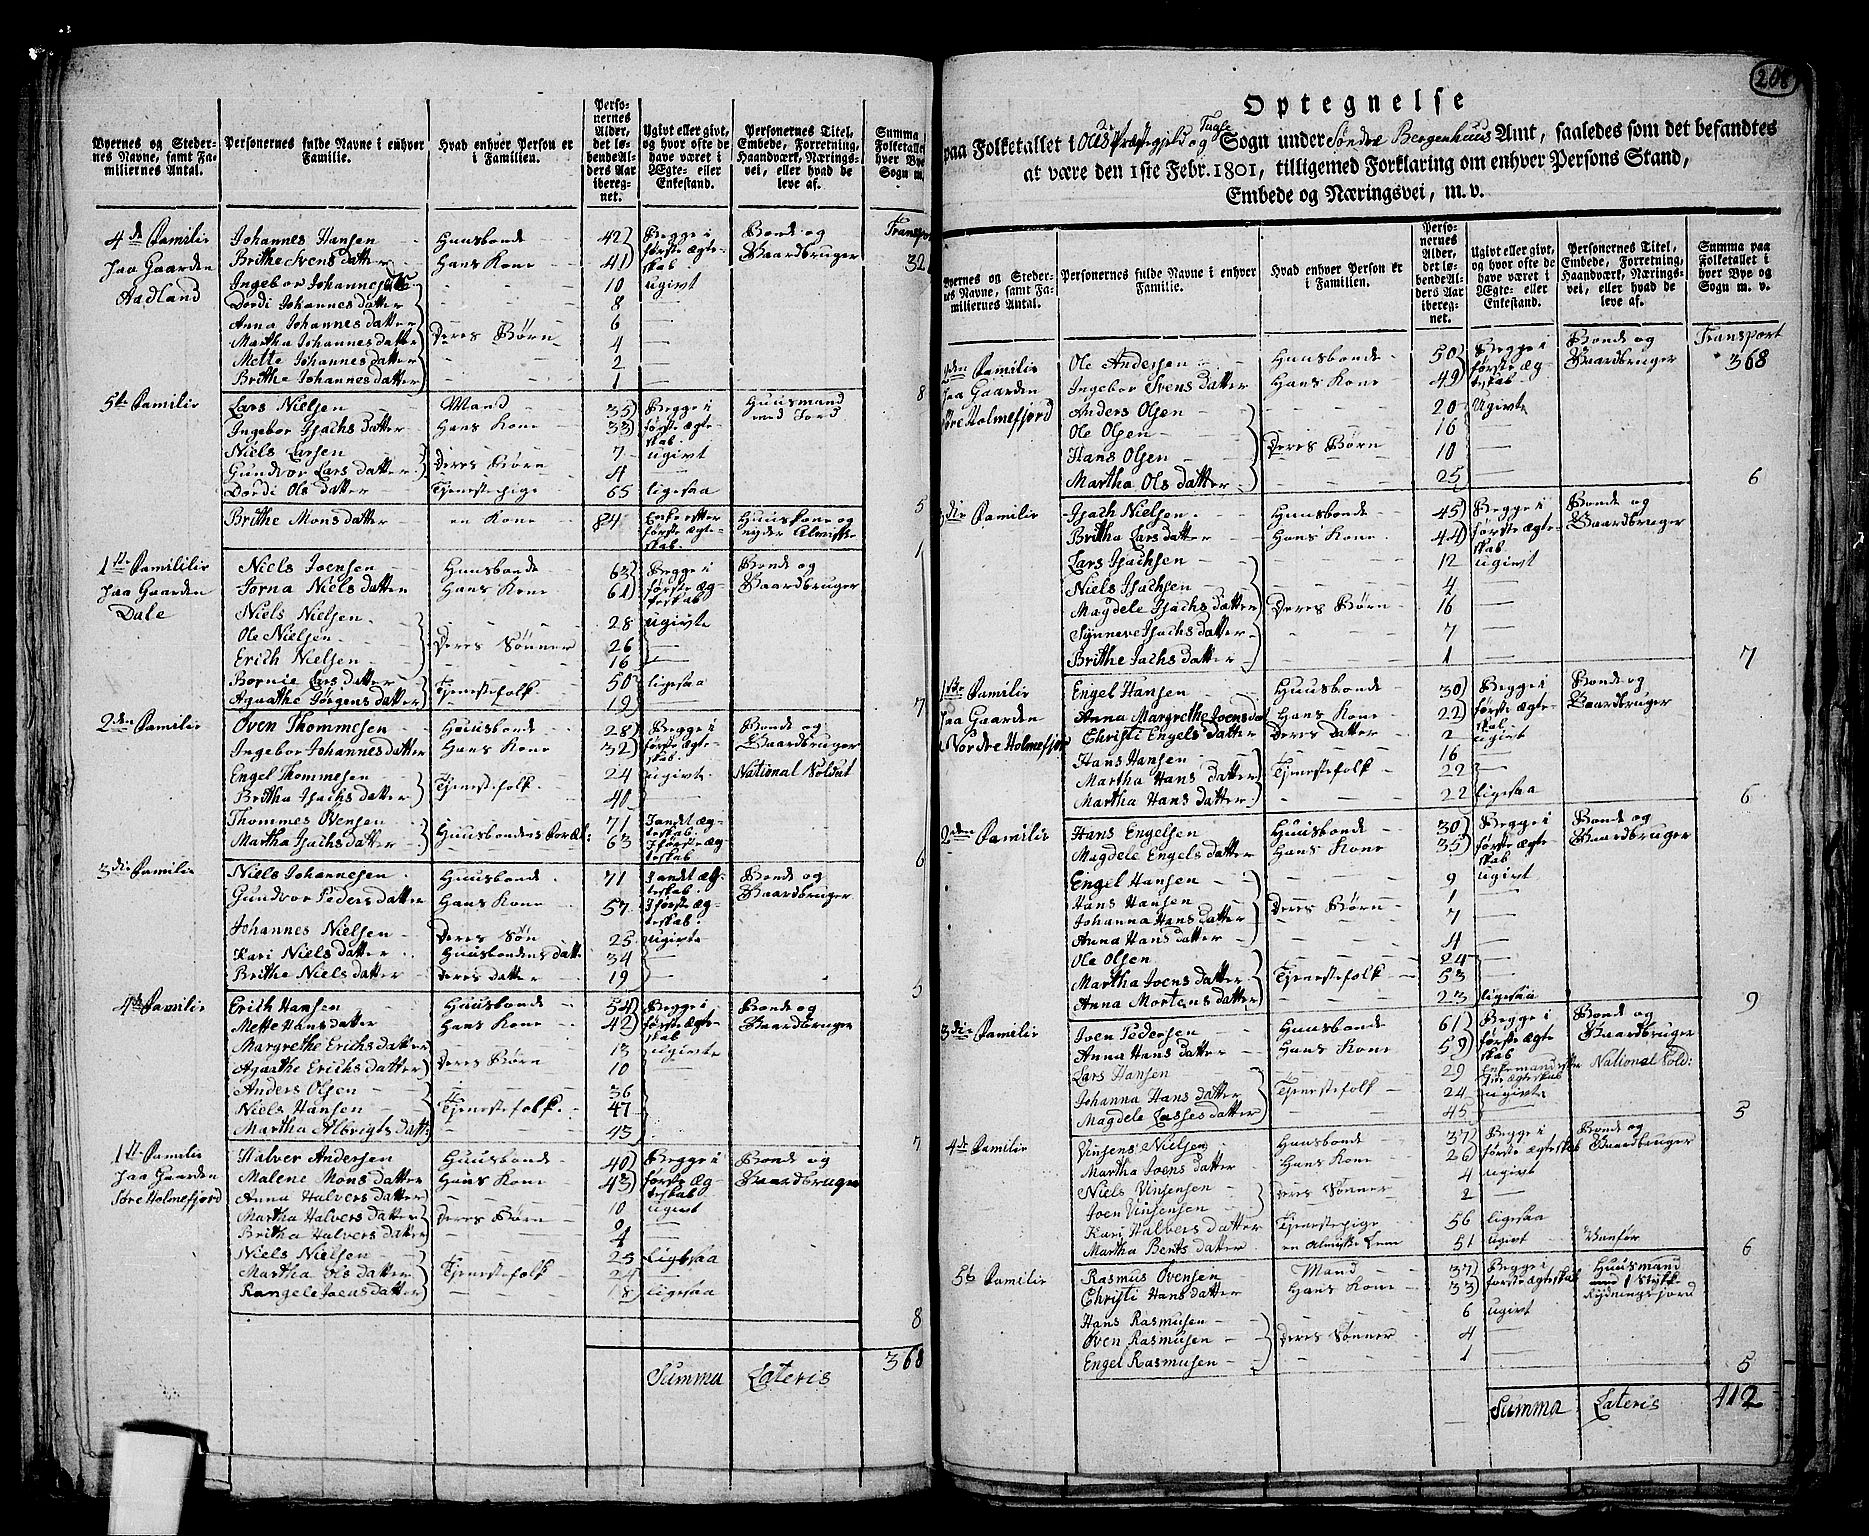 Byernes og Steder-
nes Navne, samt Fa-
miliernes Antal.
Personernes fulde Navne i enhver
Familie.
Hvad enhver Person er
i Familien.
Perso-
nernes
Alder,
det lø-
bende Al-
ders Aar
ibereg-
net.
Ugivt eller givt,
og hvor ofte de
have været i
Ægte- eller
Enkestand.
Personernes Titel,
Embede, Forretning,
Haandværk, Nærings-
vei, eller hvad de
leve af.
Summa
Folketallet
hver Bye
Sogn m.
4de Familie Johannes Hansen Huusbonde 42 Begge i Bonde og
Paa Gaarden Brithe Svens datter Hans Kone 41 første ægte- Gaardbruger 32
Aadland Ingebor Johannes skab 10 ugivt
Dordi Johannes datter 8
Anna Johannes datter 6
Martha Johannes datter Deres Børn 4
Mette Johannes datter 2
Brithe Johannes datter 1
8
5te Familie Lars Nielsen Mand 35 Begge i Huusmand
Ingebor Isachs datter Hans Kone 33 første ægte- med Jord
skab
Niels Larsen 7 ugivt
Gundvor Lars datter Deres Børn 4
Dordi Ols datter Tjenestepige 65 ligesaa
5
Brithe Mons datter en Kone 84 Enke efter Huuskone og
første ægte- nyder Almisse
skab
1
1ste Familie Niels Joensen Huusbonde 63 Begge i Bonde og
Paa Gaarden Niels datter Hans Kone 61 første æg- Gaardbruger
Dale teskab
Niels Nielsen 28 ugivte
Ole Nielsen Deres Sønner 26
Erich Nielsen 16
Lars datter Tjenestefolk 50 ligesaa
Agaathe Jørgens datter 19
7
2den Familie Oven Thommesen Huusbonde 28 Begge i Bonde og
Ingebor Johannes datter Hans Kone 32 første æg- Gaardbruger
teskab
Engel Thommesen 24 ugivte National Soldat
Britha Isachs datter Tjenestefolk 40
Thommes Ovensen 71 I andet æg-
teskab
Martha Isachs datter Huusbondens Foræl: 63 I første æg-
teskab
6
3die Familie Niels Johannesen Huusbonde 71 I andet æg- Bonde og
teskab Gaardbruger
Gundvor Peders datter Hans Kone 57 I første æg-
teskab
Johannes Nielsen Deres Søn 25 ugivte
Kari Niels datter Huusbondens datter 34
Brithe Niels datter Deres datter 19
5
4de Familie Erich Hansen Huusbonde 54 Begge i Bonde og
Mette Hans datter Hans Kone 42 første ægte- Gaardbruger
skab
Margrethe Erichs datter 13 ugivte
Agathe Erichs datter Deres Børn 10
Anders Olsen 36
Niels Hansen Tjenestefolk 47
Martha Albrigts datter 43
7
1ste Familie Halver Andersen Huusbonde 40 Begge i Bonde og
Paa Gaarden Malene Mons datter Hans Kone 43 første æg- Gaardbruger
Søre Holmefjord Anna Halvers datter 10 teskab
ugivt
Martha Halvers datter Deres Børn 9
Britha Halvers datter 4
Niels Nielsen 25 ligesaa
Martha Ols datter Tjenestefolk 24
Rangele Joens datter 18 ligesaa
8
Summa Lateris 368
208
Optegnelse
paa Folketallet i Præstegjeld og Sogn under Søndre Bergenhuus Amt, saaledes som det befandtes
at være den 1ste Febr. 1801, tilligemed Forklaring om enhver Persons Stand,
Embede og Næringsvei, m. v.
Byernes og Steder-
nes Navne, samt Fa-
miliernes Antal.
Personernes fulde Navne i enhver
Familie.
Hvad enhver Person er
i Familien.
Perso-
nernes
Alder,
det lø-
bende Al-
ders Aar
ibereg-
net.
Ugivt eller givt,
og hvor ofte de
have været i
Ægte- eller
Enkestand.
Personernes Titel,
Embede, Forretning,
Haandværk, Nærings-
vei, eller hvad de
leve af.
Summa paa
Folketallet i
hver Bye og
Sogn m. v.
Transport
2den Familie Ole Andersen Huusbonde 50 Begge i Bonde og 368
Paa Gaarden Ingebor Svens datter Hans Kone 49 første æg- Gaardbruger
teskab
Søre Holmefjord Anders Olsen 20 Ugivte
Ole Olsen 16
Hans Olsen Deres Børn 10
Martha Ols datter 25
6
3die Familie Isach Nielsen Huusbonde 45 Begge i Bonde og
Britha Lars datter Hans Kone 44 første ægte- Gaardbruger
skab
Lars Isachsen 12 ugivt
Niels Isachsen 4
Magdele Isachs datter Deres Børn 16
Synneve Isachs datter 7
Brithe Isachs datter 1
7
1ste Familie Engel Hansen Huusbonde 30 Begge i Bonde og
Paa Gaarden Anna Margrethe Joens dat Hans Kone 22 første ægte- Gaardbruger
Nordre Holmefjor Christi Engels datter Deres Datter 2 skab
ugivt
Hans Hansen 16
Martha Hans datter Tjenestefolk 22
Martha Hans datter 22 ligesaa
6
2den Familie Hans Engelsen Huusbonde 30 Begge i Bonde og
Magdele Engels datter Hans Kone 35 første ægte- Gaardbruger
skab
Engel Hansen 9 ugivt
Hans Hansen 1
Johanna Hans datter Deres Børn 7
Anna Hans datter 4
Ole Olsen 24
Martha Joens datter Tjenestefolk 53
Anna Mortens datter 23 ligesaa
9
3die Familie Joen Pedersen Huusbonde 61 Begge i Bonde og
Anna Hans datter Hans Kone 59 første ægte Gaardbruger
skab
Lars Hansen 29 Enkemand National Sold:
Johanna Hans datter Tjenestefolk 24 ugivte
Magdele Lasses datter 45
5
4de Familie Vinsens Nielsen Huusbonde 37 Begge i Bonde og
Martha Joens datter Hans Kone 26 første ægteskab Gaardbruger
Niels Vinsensen 4 ugivt
Joen Vinsensen Deres Sønner 2
Kari Halvers datter Tjenestepige 56 ligesaa
Martha Bents datter en Almisse Lem 51 ugivt Vanfør
6
5te Familie Rasmus Ovensen Mand 37 Begge i Huusmand
Christi Hans datter Hans Kone 33 første ægteskab med 1 Stykke
Rydningsjord
Hans Rasmusen 6 ugivt
Oven Rasmusen Deres Sønner 4
Engel Rasmusen 1
5
Summa Lateris 412